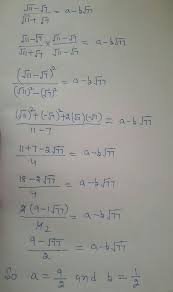 √11-√7 / √11+√7 = a-b√77
√11-√7 / √11+√7 × √11-√7 / √11-√7 = a-b√77
(√11-√7)² / (√11)²-(√7)² = a-b√77
(√11)²+(-√7)²+2(√11)(-√7) / 11-7 = a-b√77
11+7-2√77 / 4 = a-b√77
18-2√77 / 4 = a-b√77
2(9-1√77) / 4 2 = a-b√77
9-√77 / 2 = a-b√77
So a=9/2 and b=1/2